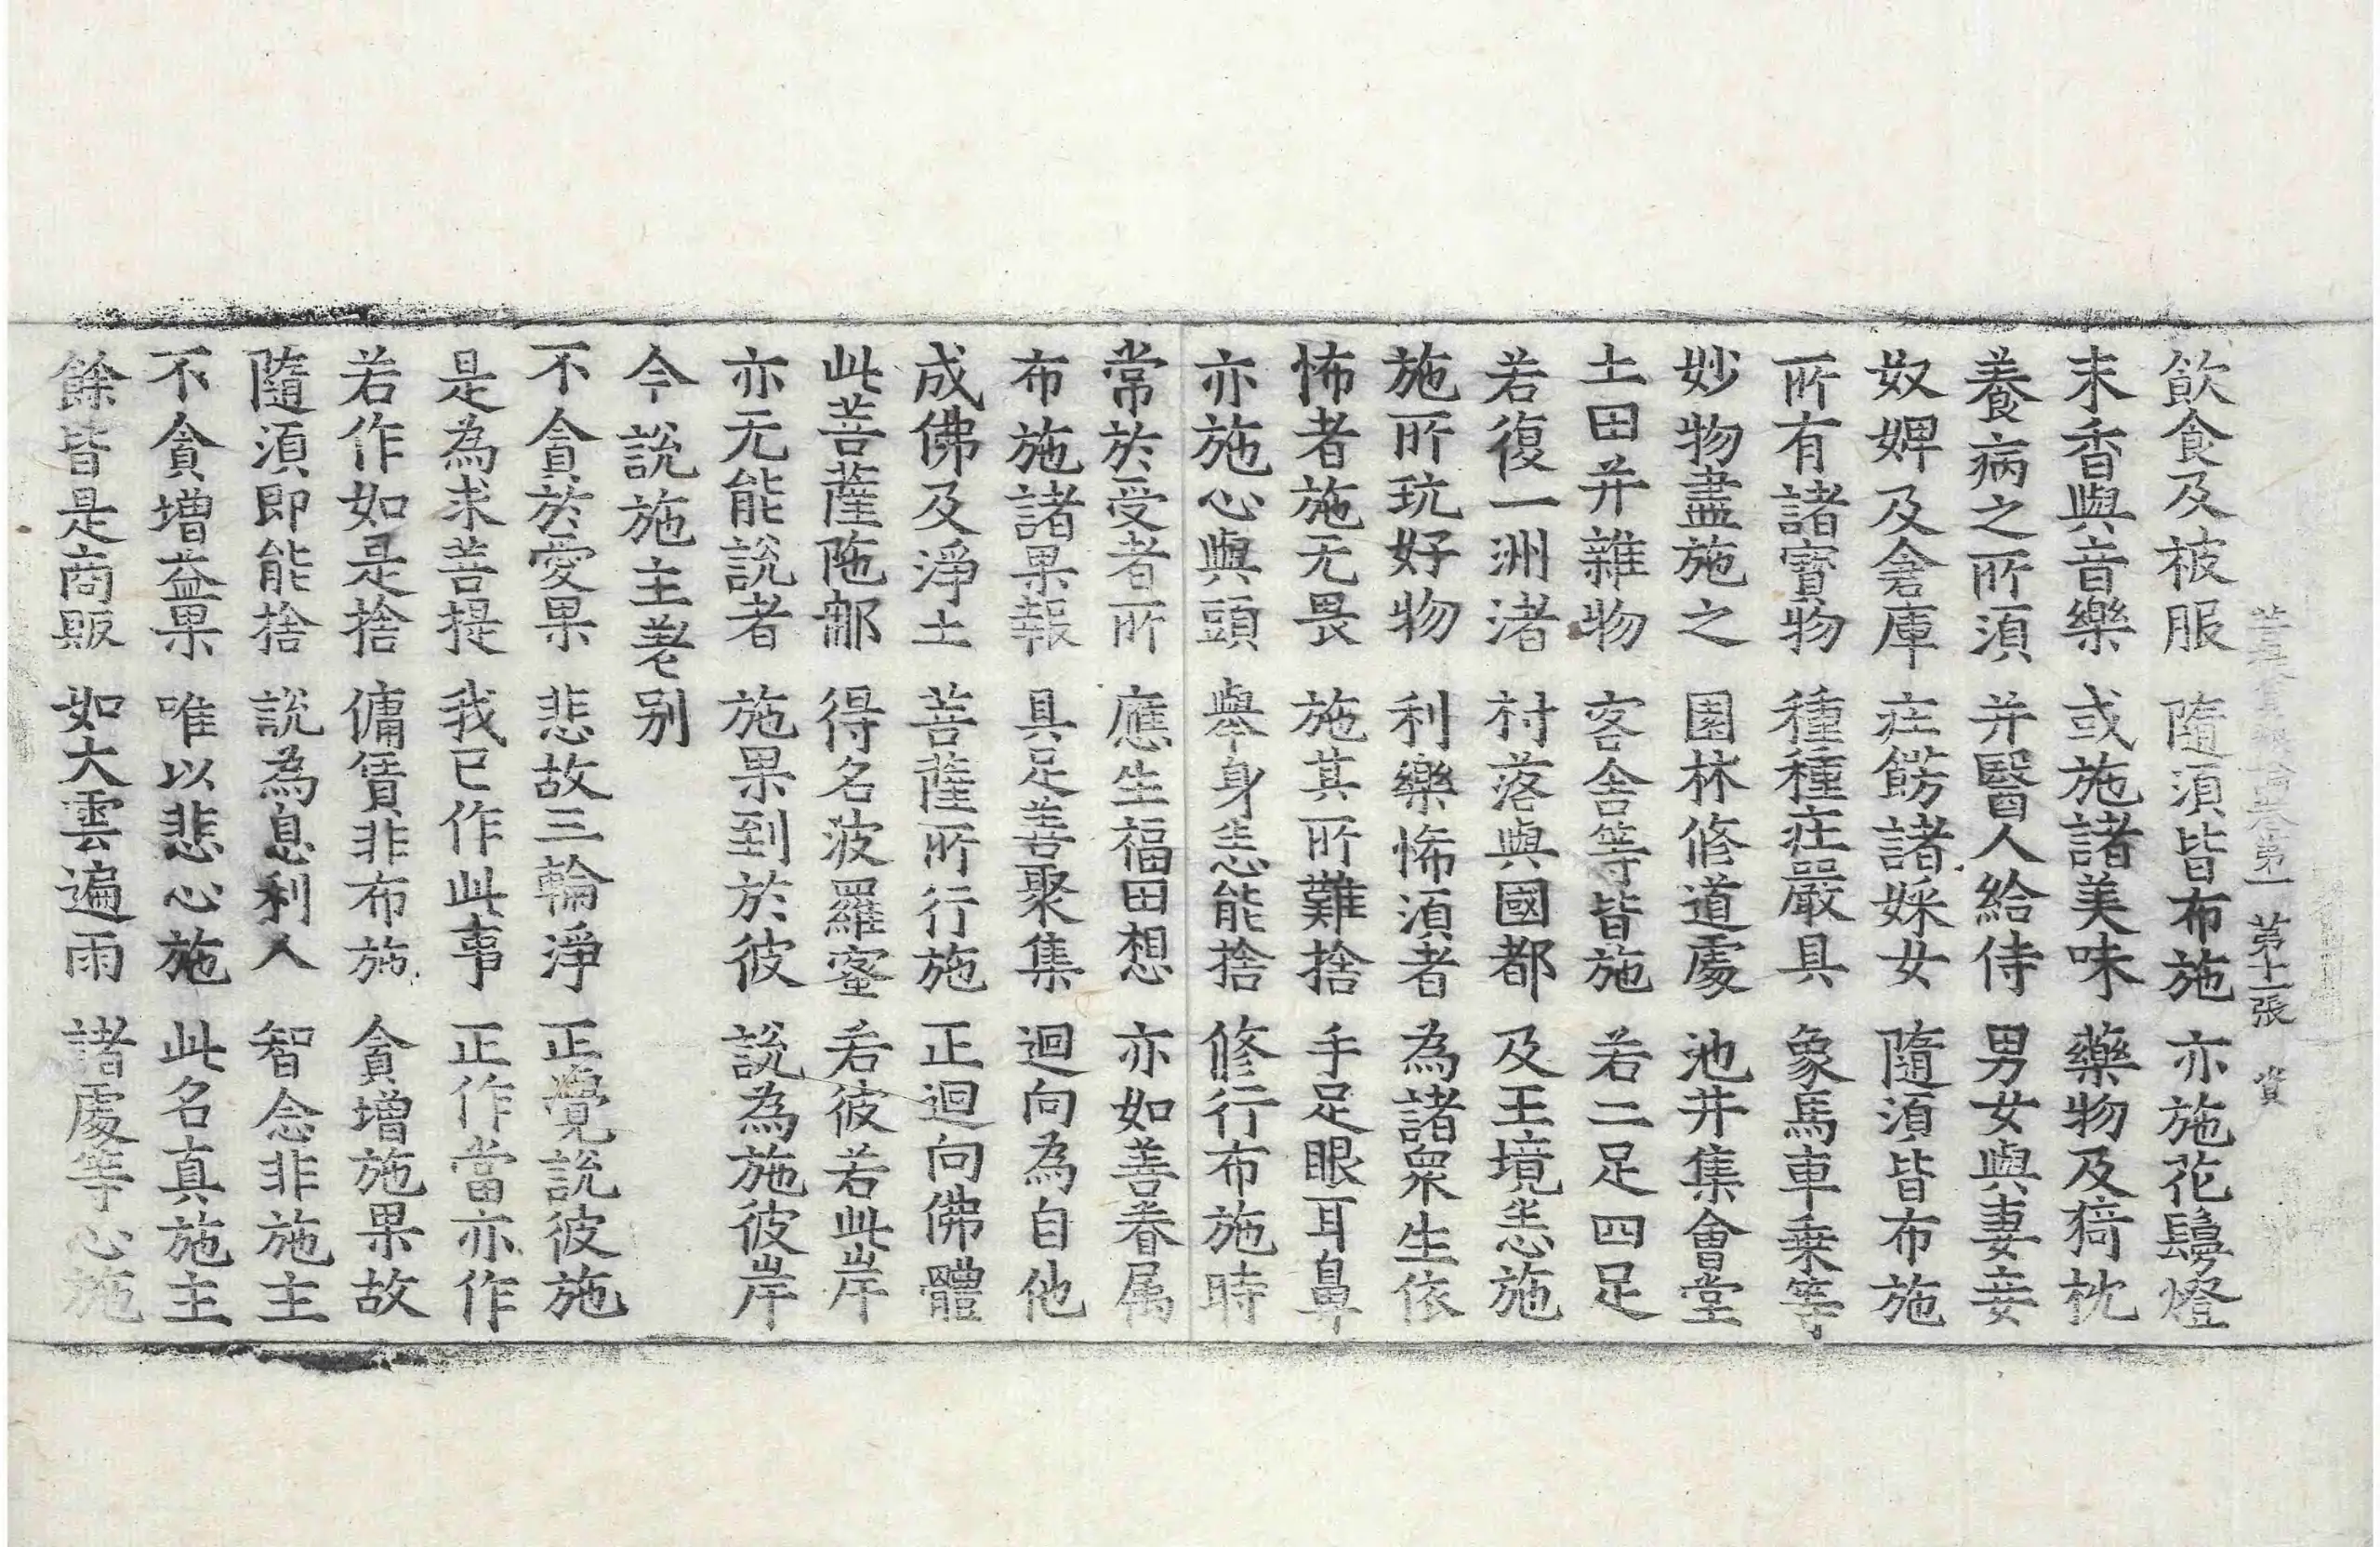 菩提資糧論卷第一 第十一張 資
飲食及被服 隨須皆布施 亦施花鬘燈
末香與音樂 或施諸美味 藥物及猗枕
養病之所須 并醫人給侍 男女與妻妾
奴婢及倉庫 莊餝諸婇女 隨須皆布施
所有諸寶物 種種莊嚴具 象馬車乗等
妙物盡施之 園林修道處 池井集會堂
土田并雜物 客舍等皆施 若二足四足
若復一洲渚 村落與國都 及王境悉施
施所玩好物 利樂悕須者 為諸眾生依
怖者施无畏 施其所難捨 手足眼耳鼻
亦施心與頭 舉身悉能捨 修行布施時
常於受者所 應生福田想 亦如善眷属
布施諸果報 具足善聚集 迴向為自他
成佛及淨土 菩薩所行施 正迴向佛體
此菩薩陁那 得名波羅蜜 若彼若此岸
亦无能說者 施果到於彼 說為施彼岸
今說施主差别
不貪於愛果 悲故三輪淨 正覺說彼施
是為求菩提 我已作此事 正作當亦作
若作如是捨 傭賃非布施 貪增施果故
隨須即能捨 說為息利人 智念非施主
不貪增益果 唯以悲心施 此名真施主
餘皆是商販 如大雲遍雨 諸處等心施